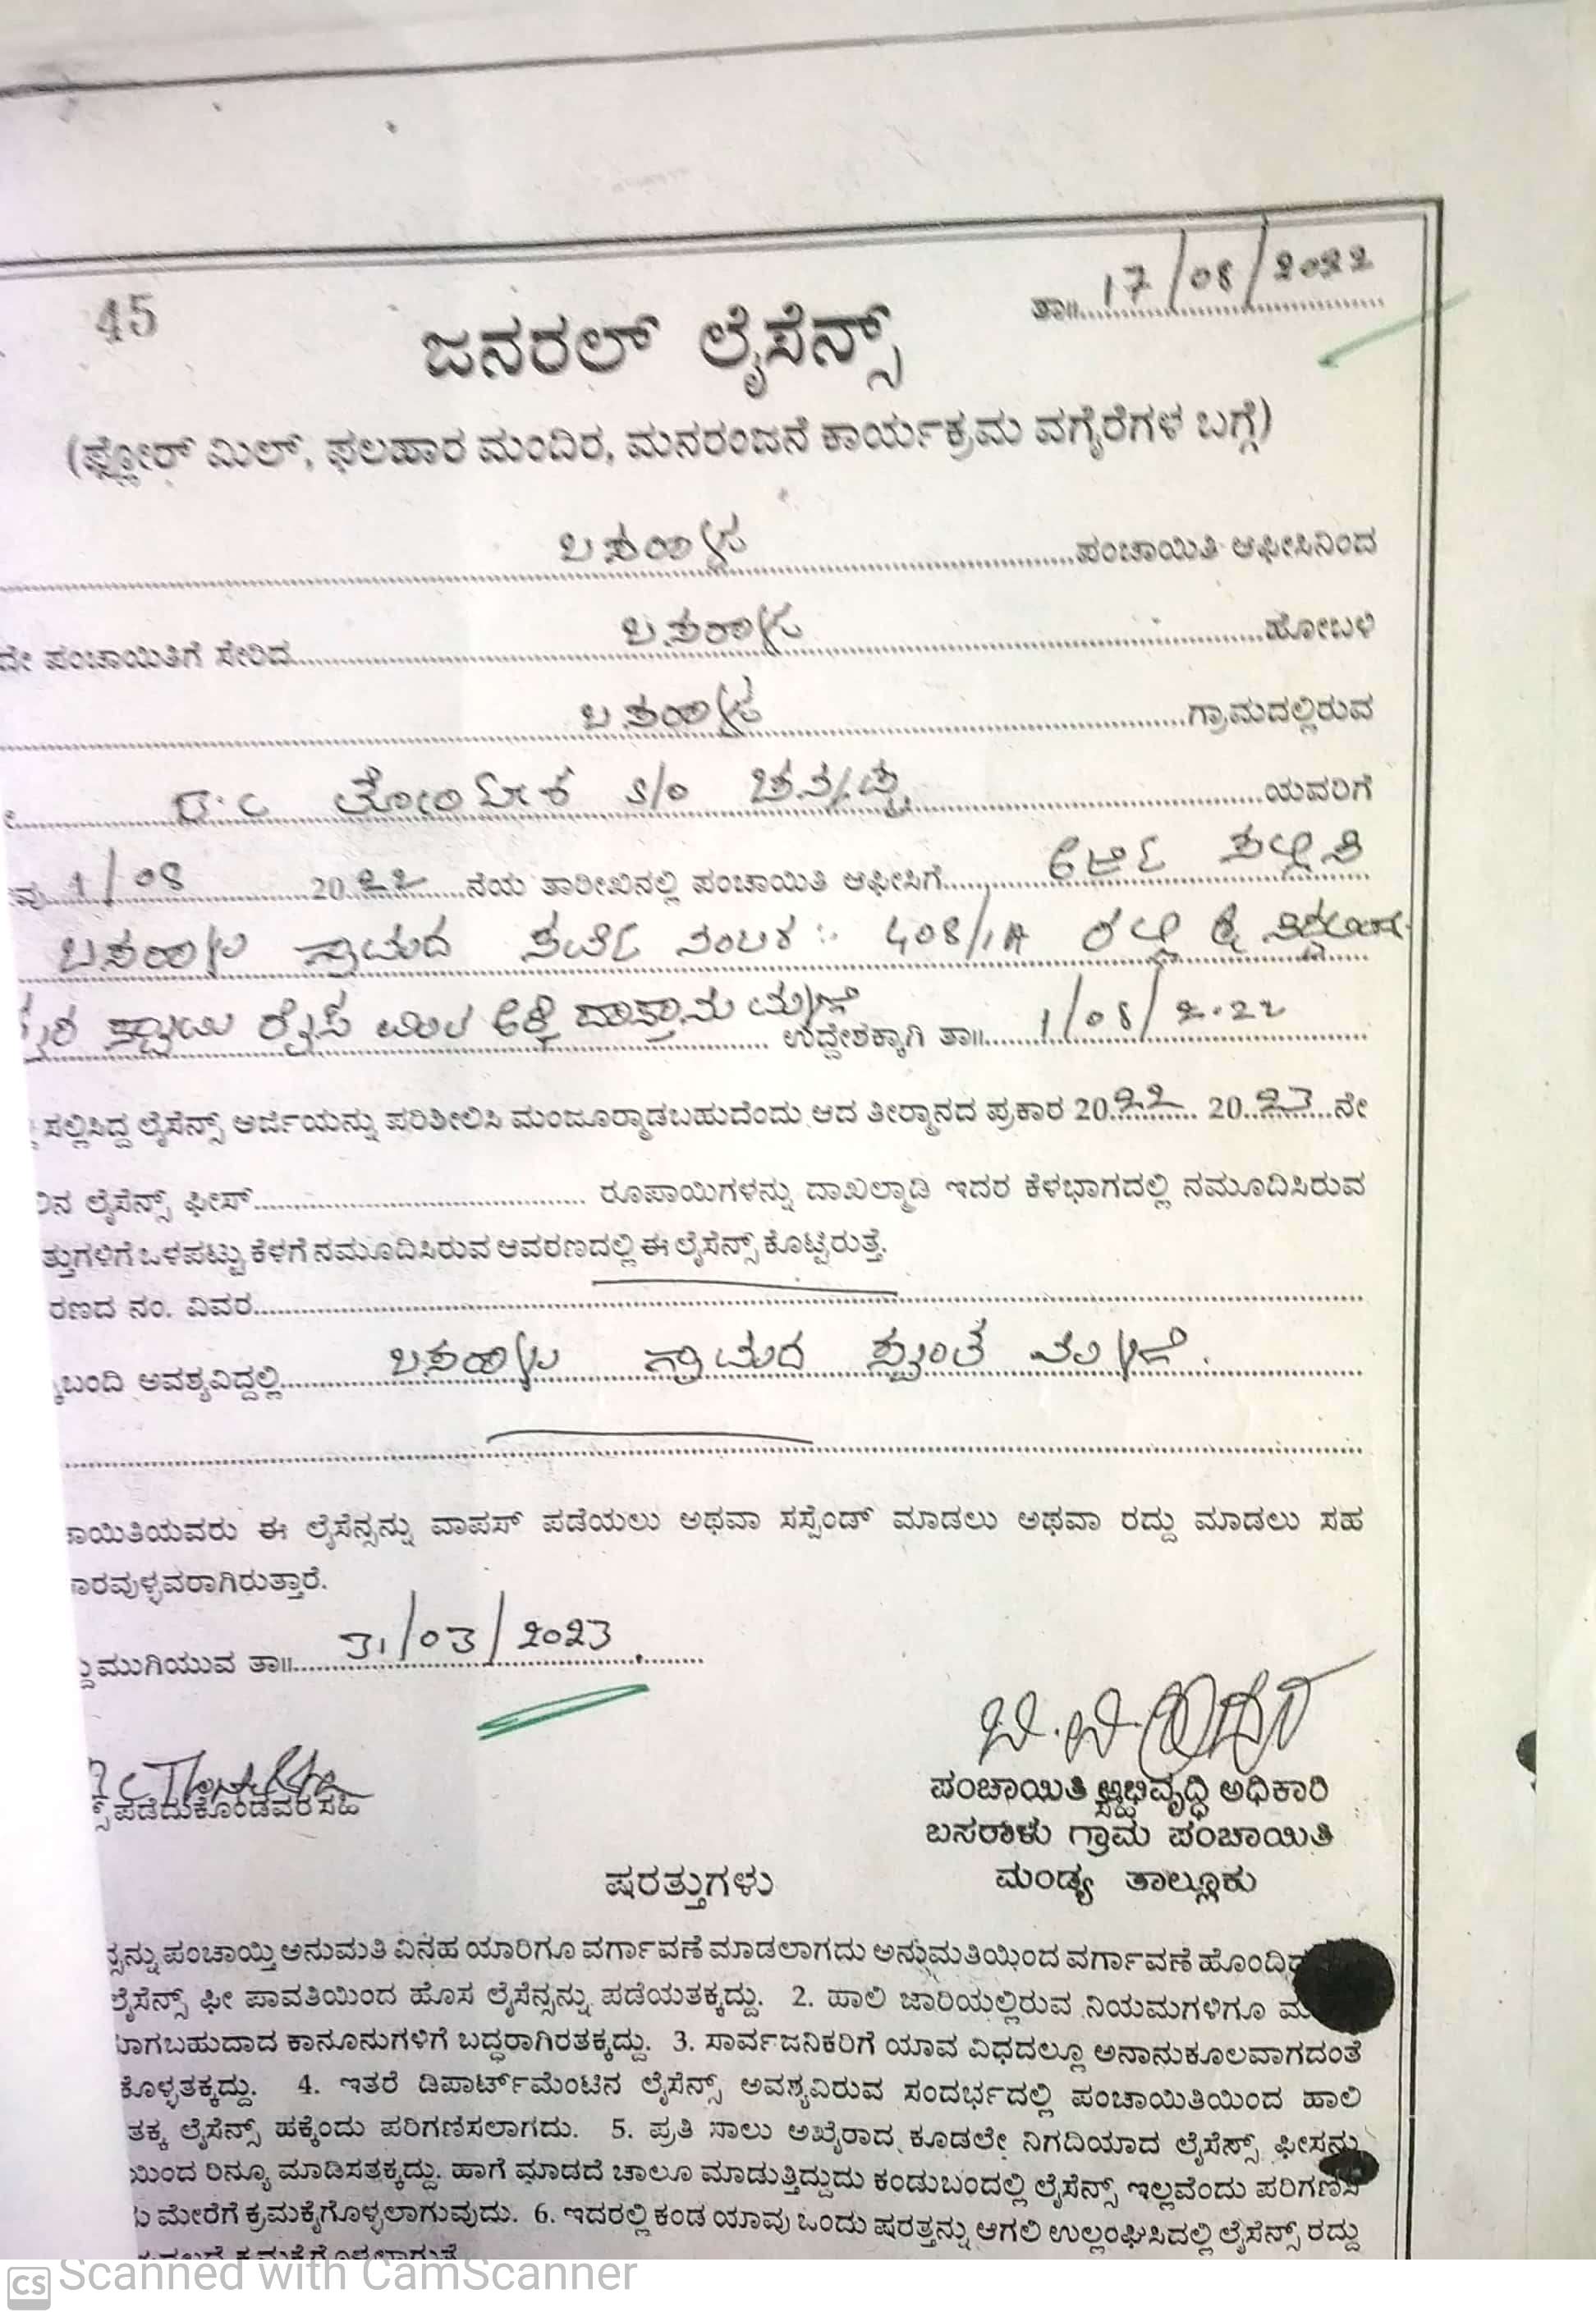 45
ತಾ॥ 17/08/2022
ಜನರಲ್ ಲೈಸೆನ್ಸ್
(ಫ್ಲೋರ್ ಮಿಲ್, ಫಲಹಾರ ಮಂದಿರ, ಮನರಂಜನೆ ಕಾರ್ಯಕ್ರಮ ವಗೈರೆಗಳ ಬಗ್ಗೆ)
ಬಸರಾಳು ಪಂಚಾಯಿತಿ ಆಫೀಸಿನಿಂದ
ದೇ ಪಂಚಾಯಿತಿಗೆ ಸೇರಿದ ಬಸರಾಳು ಹೋಬಳಿ
ಬಸರಾಳು ಗ್ರಾಮದಲ್ಲಿರುವ
S/o ಯವರಿಗೆ
1/08 2022 ನೆಯ ತಾರೀಖಿನಲ್ಲಿ ಪಂಚಾಯಿತಿ ಆಫೀಸಿಗೆ ಅರ್ಜಿ ಸಲ್ಲಿಸಿ
ಬಸರಾಳು ಗ್ರಾಮದ ಸರ್ವೆ ನಂಬರ್ : 408/1A ರಲ್ಲಿ ಶ್ರೀ
ರೈಸ್ ಮಿಲ್ ಅಕ್ಕಿ ದಾಸ್ತಾನು ಮಳಿಗೆ ಉದ್ದೇಶಕ್ಕಾಗಿ ತಾ॥ 1/08/2022
ಸಲ್ಲಿಸಿದ್ದ ಲೈಸೆನ್ಸ್ ಅರ್ಜಿಯನ್ನು ಪರಿಶೀಲಿಸಿ ಮಂಜೂರ್ಮಾಡಬಹುದೆಂದು ಆದ ತೀರ್ಮಾನದ ಪ್ರಕಾರ 2022 2023 ನೇ
ಲೈಸೆನ್ಸ್ ಫೀಸ್ ರೂಪಾಯಿಗಳನ್ನು ದಾಖಲ್ಮಾಡಿ ಇದರ ಕೆಳಭಾಗದಲ್ಲಿ ನಮೂದಿಸಿರುವ
ತ್ತುಗಳಿಗೆ ಒಳಪಟ್ಟು ಕೆಳಗೆ ನಮೂದಿಸಿರುವ ಆವರಣದಲ್ಲಿ ಈ ಲೈಸೆನ್ಸ್ ಕೊಟ್ಟಿರುತ್ತೆ.
ರಣದ ನಂ. ವಿವರ
ಬಂದಿ ಅವಶ್ಯವಿದ್ದಲ್ಲಿ ಬಸರಾಳು ಗ್ರಾಮದ ಸ್ವಂತ ಮಳಿಗೆ.
ಾಯಿತಿಯವರು ಈ ಲೈಸೆನ್ಸನ್ನು ವಾಪಸ್ ಪಡೆಯಲು ಅಥವಾ ಸಸ್ಪೆಂಡ್ ಮಾಡಲು ಅಥವಾ ರದ್ದು ಮಾಡಲು ಸಹ
ಾರವುಳ್ಳವರಾಗಿರುತ್ತಾರೆ.
ಮುಗಿಯುವ ತಾ॥ 31/03/2023
ಪಡೆದುಕೊಂಡವರ ಸಹಿ
ಪಂಚಾಯಿತಿ ಅಭಿವೃದ್ಧಿ ಅಧಿಕಾರಿ
ಬಸರಾಳು ಗ್ರಾಮ ಪಂಚಾಯಿತಿ
ಮಂಡ್ಯ ತಾಲ್ಲೂಕು
ಷರತ್ತುಗಳು
ನ್ಸನ್ನು ಪಂಚಾಯ್ತಿ ಅನುಮತಿ ವಿನಹ ಯಾರಿಗೂ ವರ್ಗಾವಣೆ ಮಾಡಲಾಗದು ಅನುಮತಿಯಿಂದ ವರ್ಗಾವಣೆ ಹೊಂದಿದ
ಲೈಸೆನ್ಸ್ ಫೀ ಪಾವತಿಯಿಂದ ಹೊಸ ಲೈಸೆನ್ಸನ್ನು ಪಡೆಯತಕ್ಕದ್ದು. 2. ಹಾಲಿ ಜಾರಿಯಲ್ಲಿರುವ ನಿಯಮಗಳಿಗೂ ಮ
ಾಗಬಹುದಾದ ಕಾನೂನುಗಳಿಗೆ ಬದ್ಧರಾಗಿರತಕ್ಕದ್ದು. 3. ಸಾರ್ವಜನಿಕರಿಗೆ ಯಾವ ವಿಧದಲ್ಲೂ ಅನಾನುಕೂಲವಾಗದಂತೆ
ಕೊಳ್ಳತಕ್ಕದ್ದು. 4. ಇತರೆ ಡಿಪಾರ್ಟ್‌ಮೆಂಟಿನ ಲೈಸೆನ್ಸ್ ಅವಶ್ಯವಿರುವ ಸಂದರ್ಭದಲ್ಲಿ ಪಂಚಾಯಿತಿಯಿಂದ ಹಾಲಿ
ತಕ್ಕ ಲೈಸೆನ್ಸ್ ಹಕ್ಕೆಂದು ಪರಿಗಣಿಸಲಾಗದು. 5. ಪ್ರತಿ ಸಾಲು ಅಖೈರಾದ ಕೂಡಲೇ ನಿಗದಿಯಾದ ಲೈಸೆನ್ಸ್ ಫೀಸನ್ನು
ಯಿಂದ ರಿನ್ಯೂ ಮಾಡಿಸತಕ್ಕದ್ದು. ಹಾಗೆ ಮಾಡದೆ ಚಾಲೂ ಮಾಡುತ್ತಿದ್ದುದು ಕಂಡುಬಂದಲ್ಲಿ ಲೈಸೆನ್ಸ್ ಇಲ್ಲವೆಂದು ಪರಿಗಣಿಸಿ
ಮೇರೆಗೆ ಕ್ರಮಕೈಗೊಳ್ಳಲಾಗುವುದು. 6. ಇದರಲ್ಲಿ ಕಂಡ ಯಾವು ಒಂದು ಷರತ್ತನ್ನು ಆಗಲಿ ಉಲ್ಲಂಘಿಸಿದಲ್ಲಿ ಲೈಸೆನ್ಸ್ ರದ್ದು
CS Scanned with CamScanner